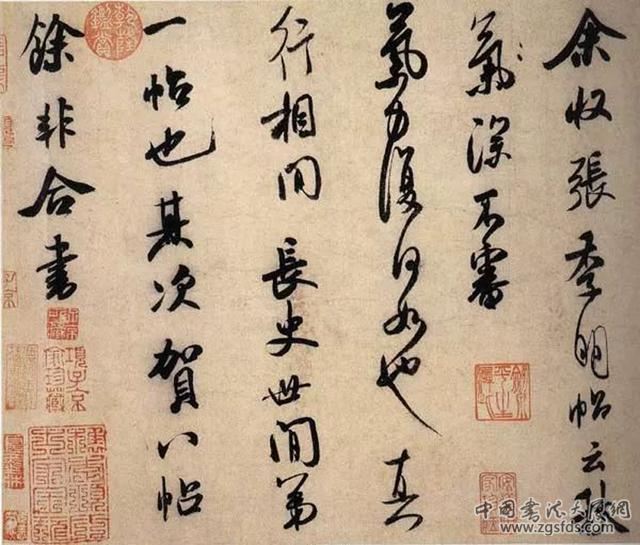 余收張季明帖云秋
氣深不審
氣力復何如也真
行相間長史世間第
一帖也其次賀八帖
餘非合書
乾隆鑑賞
項子京家珍藏
www.zgsfds.com